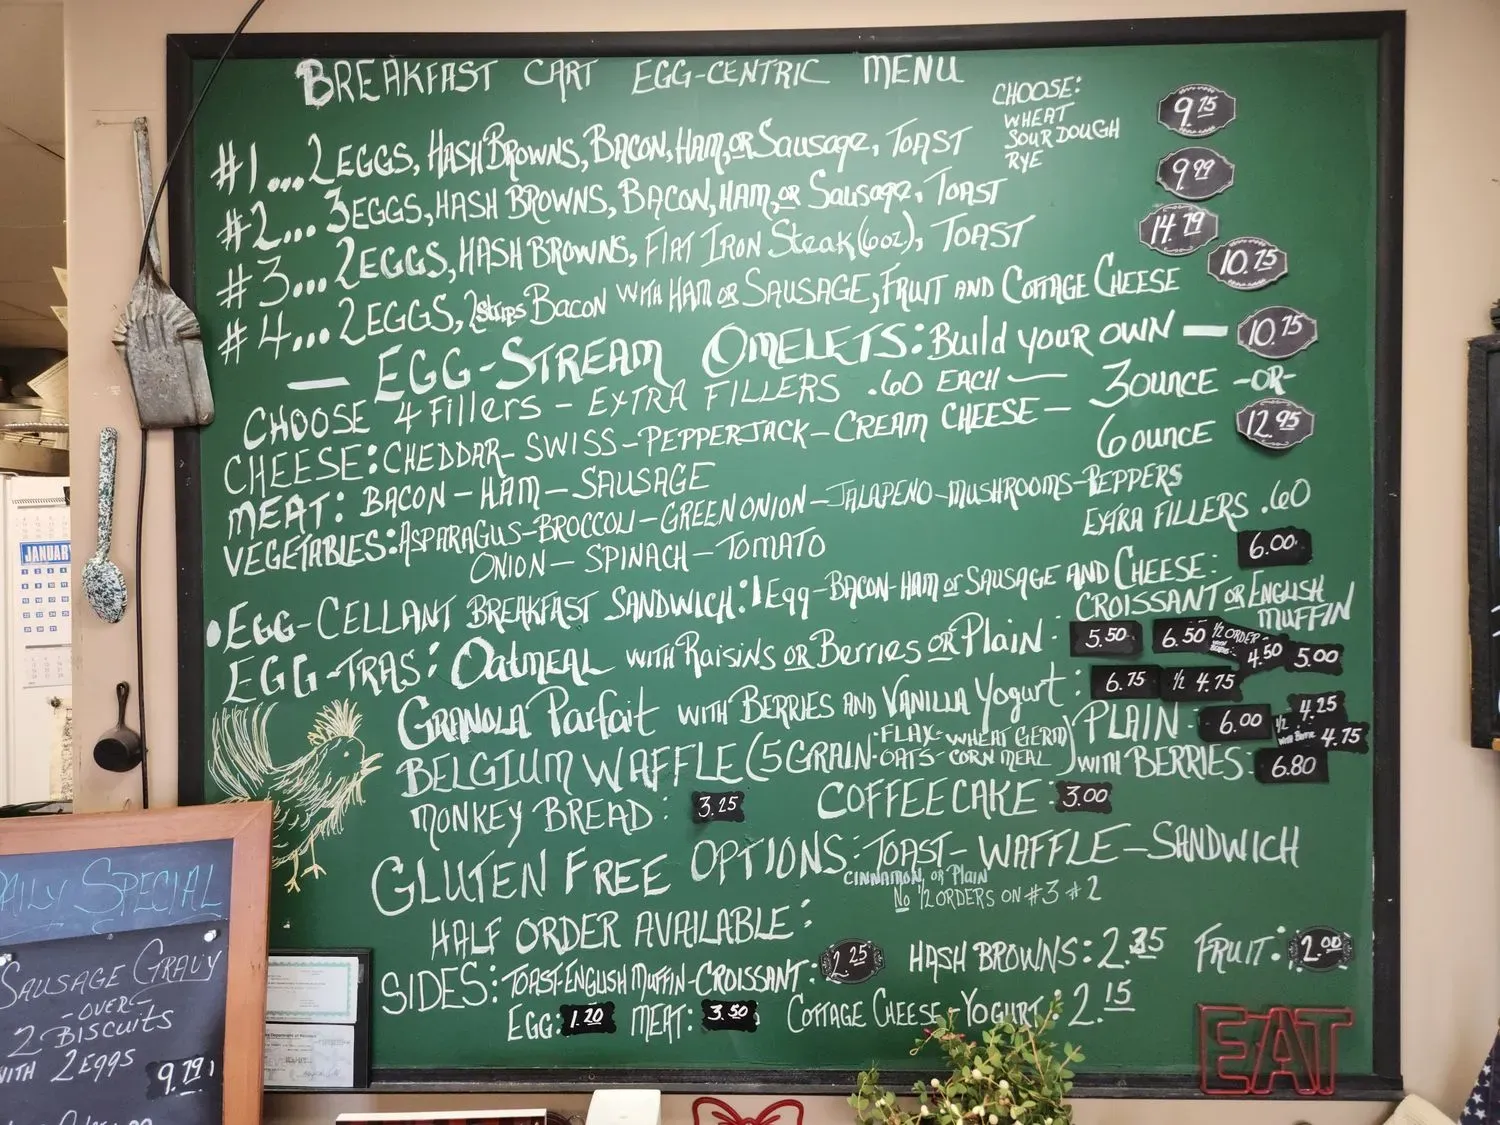 BREAKFAST CART EGG-CENTRIC MENU
CHOOSE:
WHEAT
SOUR DOUGH
RYE
#1...2 EGGS, HASH BROWNS, BACON, HAM, OR SAUSAGE, TOAST 9.75
#2...3 EGGS, HASH BROWNS, BACON, HAM, OR SAUSAGE, TOAST 9.99
#3...2 EGGS, HASH BROWNS, FLAT IRON STEAK (6oz.), TOAST 14.79
#4...2 EGGS, 2 strips BACON WITH HAM OR SAUSAGE, FRUIT AND COTTAGE CHEESE 10.75
— EGG-STREAM OMELETS: Build your OWN — 10.75
CHOOSE 4 Fillers - EXTRA FILLERS .60 EACH — 3 OUNCE -OR-
CHEESE: CHEDDAR - SWISS - PEPPERJACK - CREAM CHEESE - 6 OUNCE 12.95
MEAT: BACON - HAM - SAUSAGE
VEGETABLES: ASPARAGUS - BROCCOLI - GREEN ONION - JALAPENO - MUSHROOMS - PEPPERS
ONION - SPINACH - TOMATO EXTRA FILLERS .60
6.00
• EGG-CELLANT BREAKFAST SANDWICH: 1 Egg - BACON - HAM or SAUSAGE AND CHEESE:
CROISSANT OR ENGLISH MUFFIN
EGG-TRAS: OATMEAL WITH RAISINS OR Berries OR Plain: 5.50 6.50 1/2 ORDER 4.50 5.00
GRANOLA Parfait WITH BERRIES AND VANILLA Yogurt: 6.75 1/2 4.75
BELGIUM WAFFLE (5 GRAIN - FLAX - WHEAT GERM OATS - CORN MEAL) PLAIN: 6.00 1/2 4.25
WITH BERRIES: 6.80 4.75
MONKEY BREAD: 3.25 COFFEECAKE: 3.00
GLUTEN FREE OPTIONS: TOAST - WAFFLE - SANDWICH
CINNAMON, OR PLAIN
No 1/2 ORDERS ON #3 #2
HALF ORDER AVAILABLE:
SIDES: TOAST-ENGLISH MUFFIN-CROISSANT: 2.25 HASH BROWNS: 2.25 FRUIT: 2.00
EGG: 1.20 MEAT: 3.50 COTTAGE CHEESE - YOGURT: 2.15
EAT
JANUARY
DAILY SPECIAL
SAUSAGE GRAVY
-OVER-
2 BISCUITS
WITH 2 EGGS
9.79